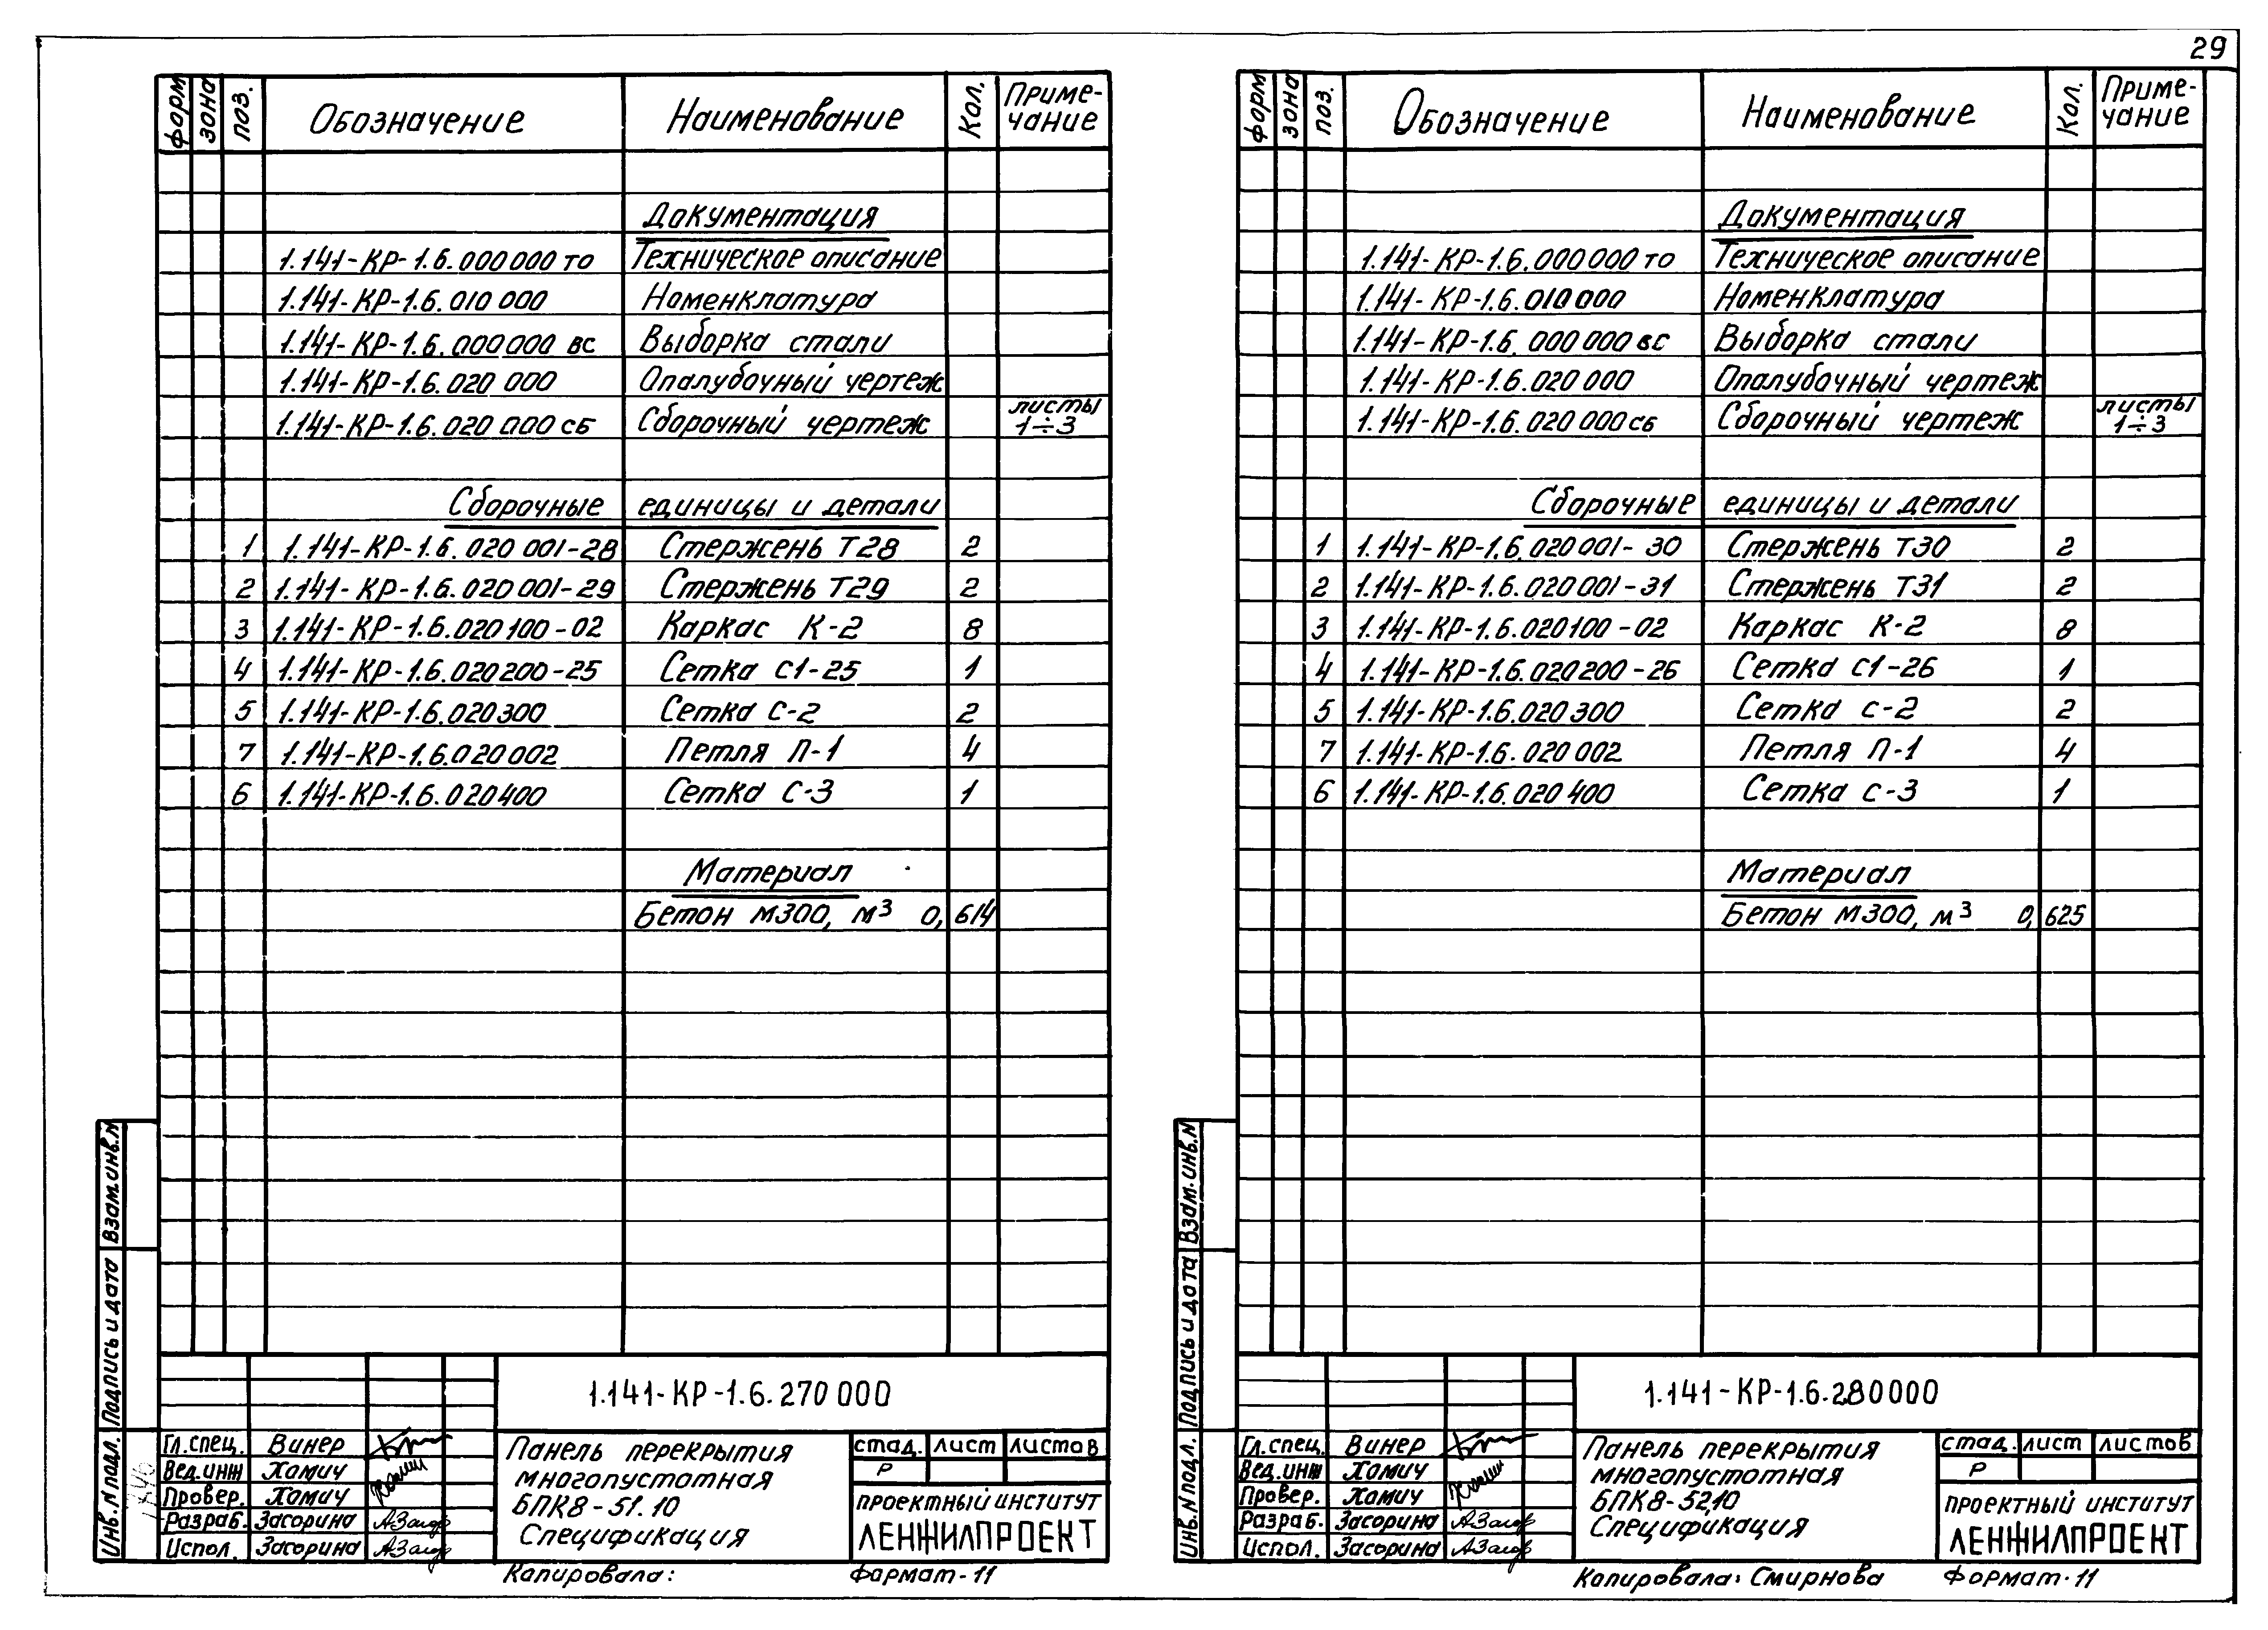 29
форм зона поз. Обозначение Наименование Кол. Приме-
чание
Документация
1.141-КР-1.6.000000 то Техническое описание
1.141-КР-1.6.010 000 Номенклатура
1.141-КР-1.6.000000 вс Выборка стали
1.141-КР-1.6.020 000 Опалубочный чертеж
1.141-КР-1.6.020 000 сб Сборочный чертеж листы
1÷3
Сборочные единицы и детали
1 1.141-КР-1.6.020 001-28 Стержень Т28 2
2 1.141-КР-1.6.020 001-29 Стержень Т29 2
3 1.141-КР-1.6.020100-02 Каркас К-2 8
4 1.141-КР-1.6.020200-25 Сетка с1-25 1
5 1.141-КР-1.6.020300 Сетка с-2 2
7 1.141-КР-1.6.020002 Петля П-1 4
6 1.141-КР-1.6.020400 Сетка с-3 1
Материал
Бетон м300, м³ 0,614
Взам.инв.N
Подпись и дата
Инв.N подл.
1.141-КР-1.6.270 000
Гл.спец. Винер
Вед.инж Хамич
Провер. Хамич
Разраб. Засорина
Испол. Засорина
Панель перекрытия
многопустотная
БПК8-51.10
Спецификация
стад. лист листов
Р
проектный институт
ЛЕНЖИЛПРОЕКТ
Копировала: Формат-11
форм зона поз. Обозначение Наименование Кол. Приме-
чание
Документация
1.141-КР-1.6.000000 то Техническое описание
1.141-КР-1.6.010000 Номенклатура
1.141-КР-1.6.000000 вс Выборка стали
1.141-КР-1.6.020 000 Опалубочный чертеж
1.141-КР-1.6.020 000 сб Сборочный чертеж листы
1÷3
Сборочные единицы и детали
1 1.141-КР-1.6.020001-30 Стержень Т30 2
2 1.141-КР-1.6.020001-31 Стержень Т31 2
3 1.141-КР-1.6.020100-02 Каркас К-2 8
4 1.141-КР-1.6.020200-26 Сетка с1-26 1
5 1.141-КР-1.6.020300 Сетка с-2 2
7 1.141-КР-1.6.020002 Петля П-1 4
6 1.141-КР-1.6.020400 Сетка с-3 1
Материал
Бетон м300, м³ 0,625
Взам.инв.N
Подпись и дата
Инв.N подл.
1.141-КР-1.6.280000
Гл.спец. Винер
Вед.инж Хамич
Провер. Хамич
Разраб. Засорина
Испол. Засорина
Панель перекрытия
многопустотная
БПК8-52.10
Спецификация
стад. лист листов
Р
проектный институт
ЛЕНЖИЛПРОЕКТ
Копировала: Смирнова Формат-11